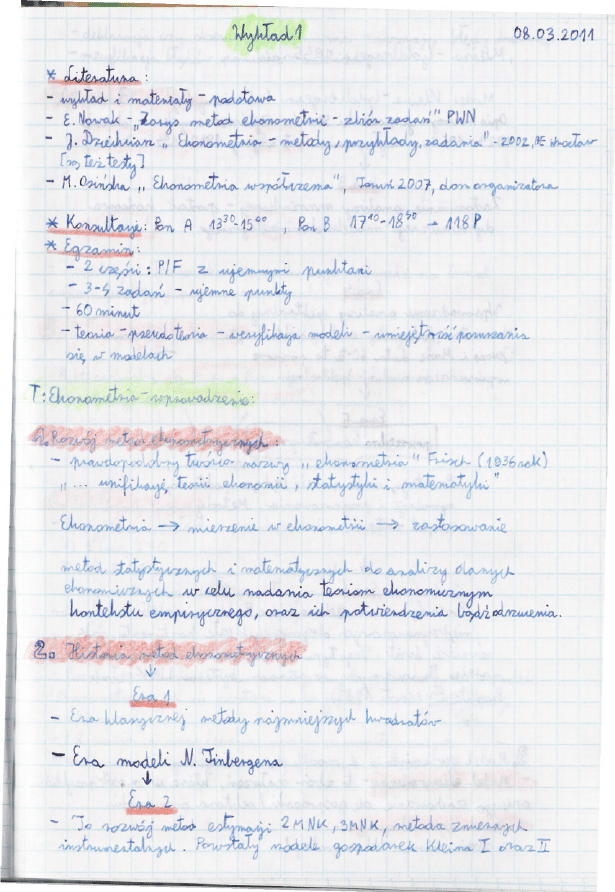 Wykład 1 08.03.2011
* Literatura:
- wykład i materiały - podstawa
- E. Nowak - „Zarys metod ekonometrii - zbiór zadań" PWN
- J. Dziechciarz „Ekonometria - metody, przykłady, zadania" - 2002, AE Wrocław
[są też testy]
- M. Osińska „Ekonometria współczesna", Toruń 2007, dom organizatora
* Konsultacje: Pon A 13³⁰-15⁰⁰, Pon B 17¹⁰-18⁵⁰ → 118 P
* Egzamin:
- 2 części: P/F z ujemnymi punktami
- 3-5 zadań - ujemne punkty
- 60 minut
- teoria - pseudoteoria - weryfikacja modeli - umiejętność poruszania
się w modelach
T: Ekonometria - wprowadzenie:
1. Rozwój metod ekonometrycznych:
- prawdopodobny twórca nazwy „ekonometria" Frisch (1936 rok)
„... unifikację teorii ekonomii, statystyki i matematyki"
Ekonometria → mierzenie w ekonometrii → zastosowanie
metod statystycznych i matematycznych do analizy danych
ekonomicznych w celu nadania teoriom ekonomicznym
kontekstu empirycznego, oraz ich potwierdzenia bądź odrzucenia.
2. Historia metod ekonometrycznych
↓
Era 1
- Era klasycznej metody najmniejszych kwadratów
- Era modeli N. Tinbergena
↓
Era 2
- To rozwój metod estymacji 2MNK, 3MNK, metoda zmiennych
instrumentalnych. Powstały modele gospodarek Kleina I oraz II